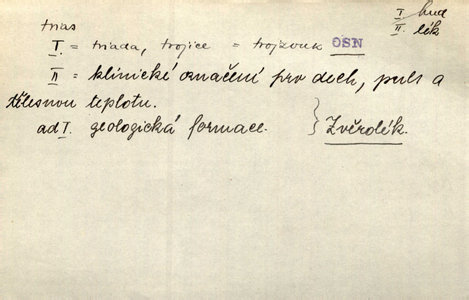 I. hud
II. lék
trias
I. = triada, trojice = trojzvuk OSN
II = klinické označení pro dech, puls a
tělesnou teplotu.
ad I. geologická formace. } Zvěrolék.